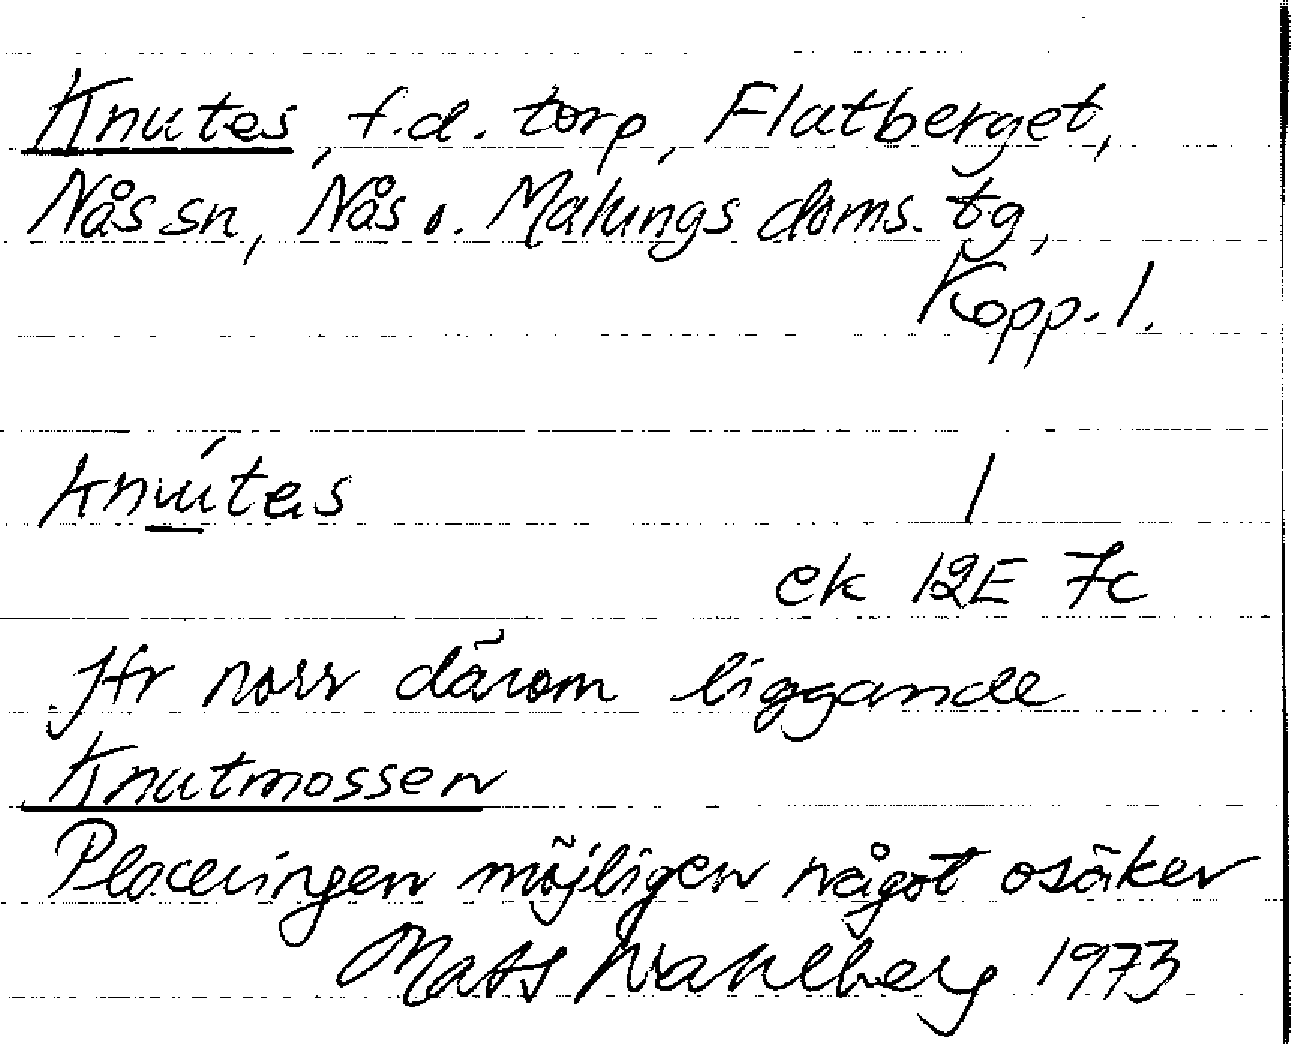 Knutes, f.d. torp, Flatberget,
Nås sn, Nås o. Malungs doms. tg,
Kopp. l.
knútes 1
ek 12E 7c
Jfr norr därom liggande
Knutmossen
Placeringen möjligen något osäker
Mats Wahlberg 1973